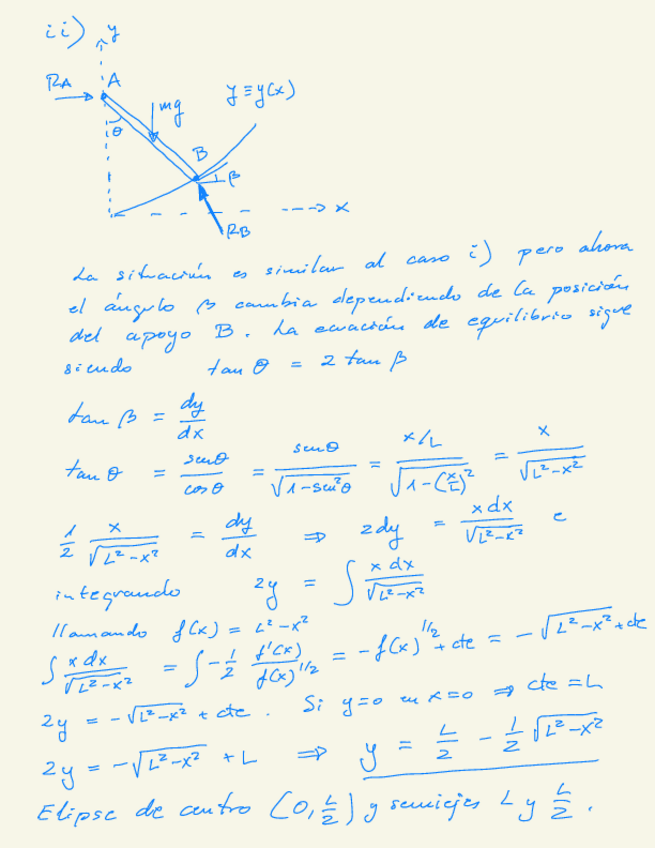 ii)
y
RA
A
mg
y ≡ y(x)
θ
B
β
x
RB
La situación es similar al caso i) pero ahora
el ángulo β cambia dependiendo de la posición
del apoyo B. La ecuación de equilibrio sigue
siendo tan θ = 2 tan β
tan β = dy/dx
tan θ = senθ/cosθ = senθ/√(1-sen²θ) = (x/L)/√(1-(x/L)²) = x/√(L²-x²)
1/2 x/√(L²-x²) = dy/dx ⇒ 2dy = x dx/√(L²-x²) e
integrando 2y = ∫ x dx/√(L²-x²)
llamando f(x) = L²-x²
∫ x dx/√(L²-x²) = ∫ -1/2 f'(x)/f(x)^1/2 = -f(x)^1/2 + cte = -√(L²-x²) + cte
2y = -√(L²-x²) + cte. Si y=0 en x=0 ⇒ cte = L
2y = -√(L²-x²) + L ⇒ y = L/2 - 1/2 √(L²-x²)
Elipse de centro (0, L/2) y semiejes L y L/2.